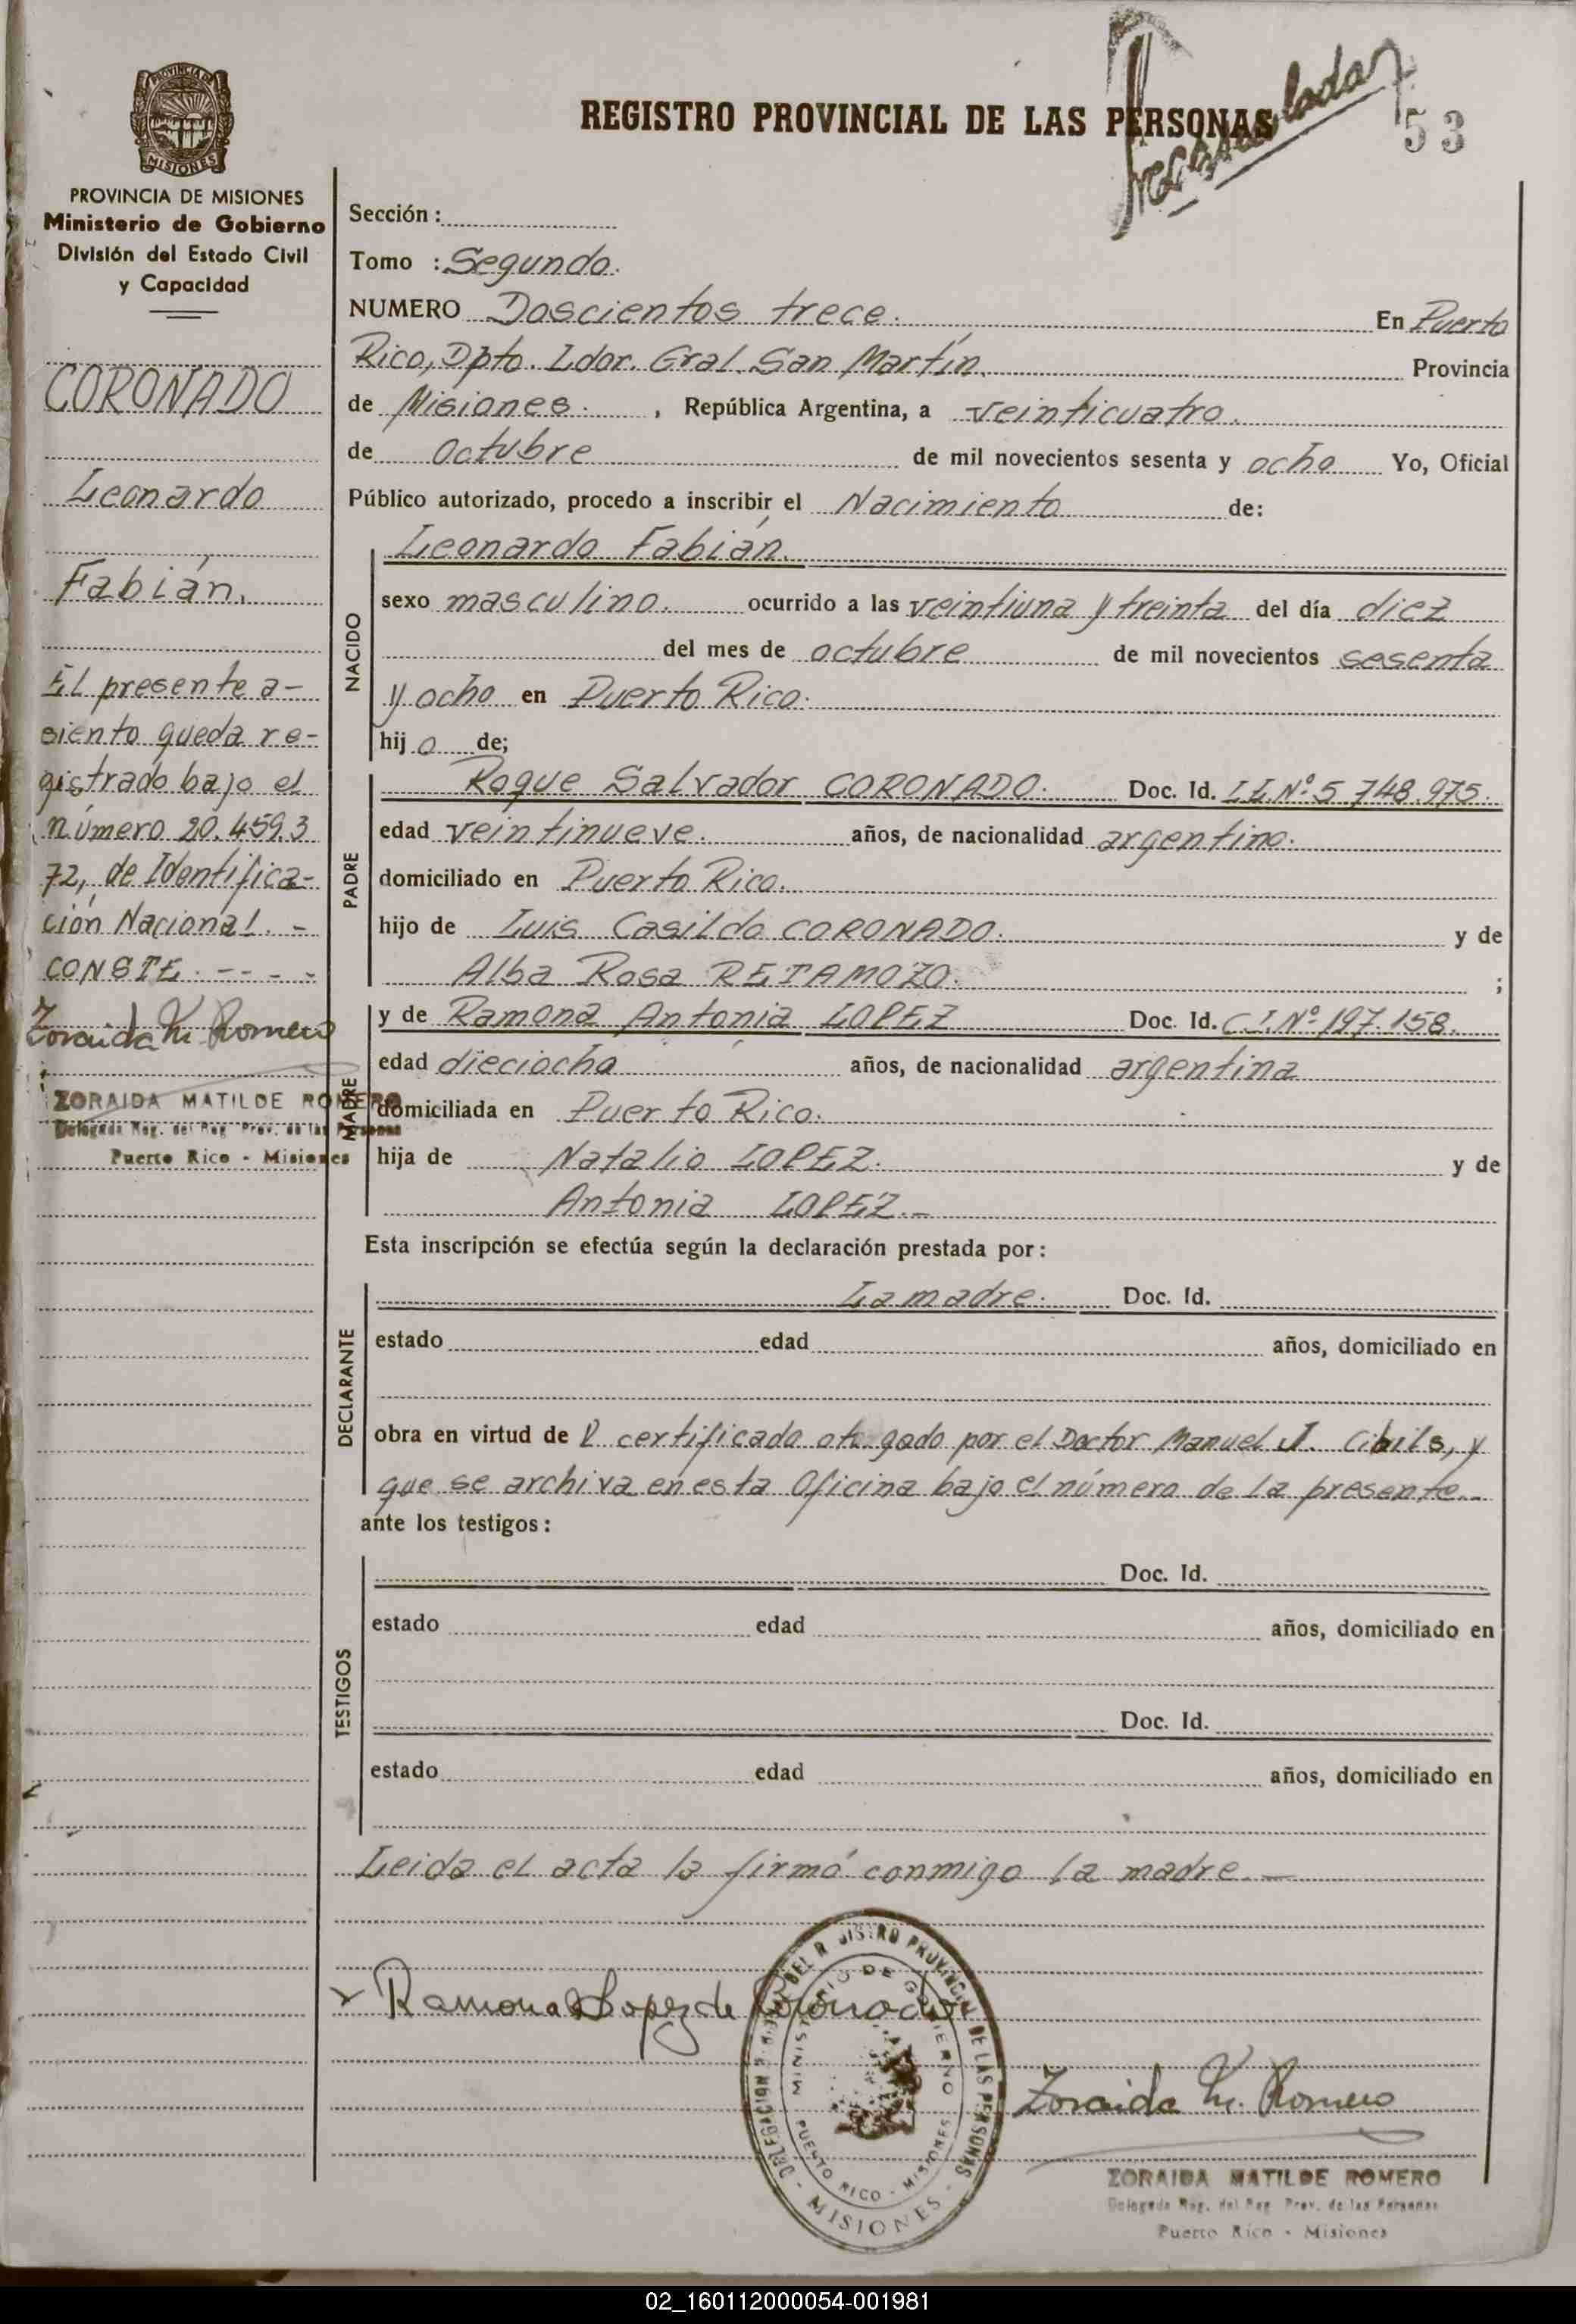 REGISTRO PROVINCIAL DE LAS PERSONAS
53
PROVINCIA DE
MISIONES
PROVINCIA DE MISIONES
Ministerio de Gobierno
División del Estado Civil
y Capacidad
CORONADO
Leonardo
Fabián.
El presente a-
siento queda re-
gistrado bajo el
número 20.459.3
72, de Identifica-
ción Nacional. -
CONSTE. - - - -
Zoraida M. Romero
ZORAIDA MATILDE ROMERO
Delegada Reg. del Reg. Prov. de las Personas
Puerto Rico - Misiones
Sección :
Tomo : Segundo.
NUMERO Doscientos trece. En Puerto
Rico, Dpto. Ldor. Gral. San Martín. Provincia
de Misiones. , República Argentina, a veinticuatro.
de octubre de mil novecientos sesenta y ocho Yo, Oficial
Público autorizado, procedo a inscribir el Nacimiento de:
NACIDO
Leonardo Fabián.
sexo masculino. ocurrido a las veintiuna y treinta del día diez
del mes de octubre de mil novecientos sesenta
y ocho en Puerto Rico.
hij o de;
PADRE
Roque Salvador CORONADO. Doc. Id. L.E. Nº 5 748.975.
edad veintinueve. años, de nacionalidad argentino.
domiciliado en Puerto Rico.
hijo de Luis Casildo CORONADO. y de
Alba Rosa RETAMOZO. ;
MADRE
y de Ramona Antonia LOPEZ Doc. Id. C.I. Nº 197.158.
edad dieciocho años, de nacionalidad argentina
domiciliada en Puerto Rico.
hija de Natalio LOPEZ. y de
Antonia LOPEZ.-
Esta inscripción se efectúa según la declaración prestada por:
DECLARANTE
La madre. Doc. Id.
estado edad años, domiciliado en
obra en virtud de l certificado otorgado por el Doctor Manuel J. Cibils, y
que se archiva en esta Oficina bajo el número de la presente.-
ante los testigos:
TESTIGOS
Doc. Id.
estado edad años, domiciliado en
Doc. Id.
estado edad años, domiciliado en
Leida el acta la firmó conmigo la madre.-
Ramona Lopez de Coronado
DEL REGISTRO PROVINCIAL DE LAS PERSONAS
MINISTERIO DE GOBIERNO
PUERTO RICO - MISIONES
- MISIONES -
Zoraida M. Romero
ZORAIDA MATILDE ROMERO
Delegada Reg. del Reg. Prov. de las Personas
Puerto Rico - Misiones
02_160112000054-001981